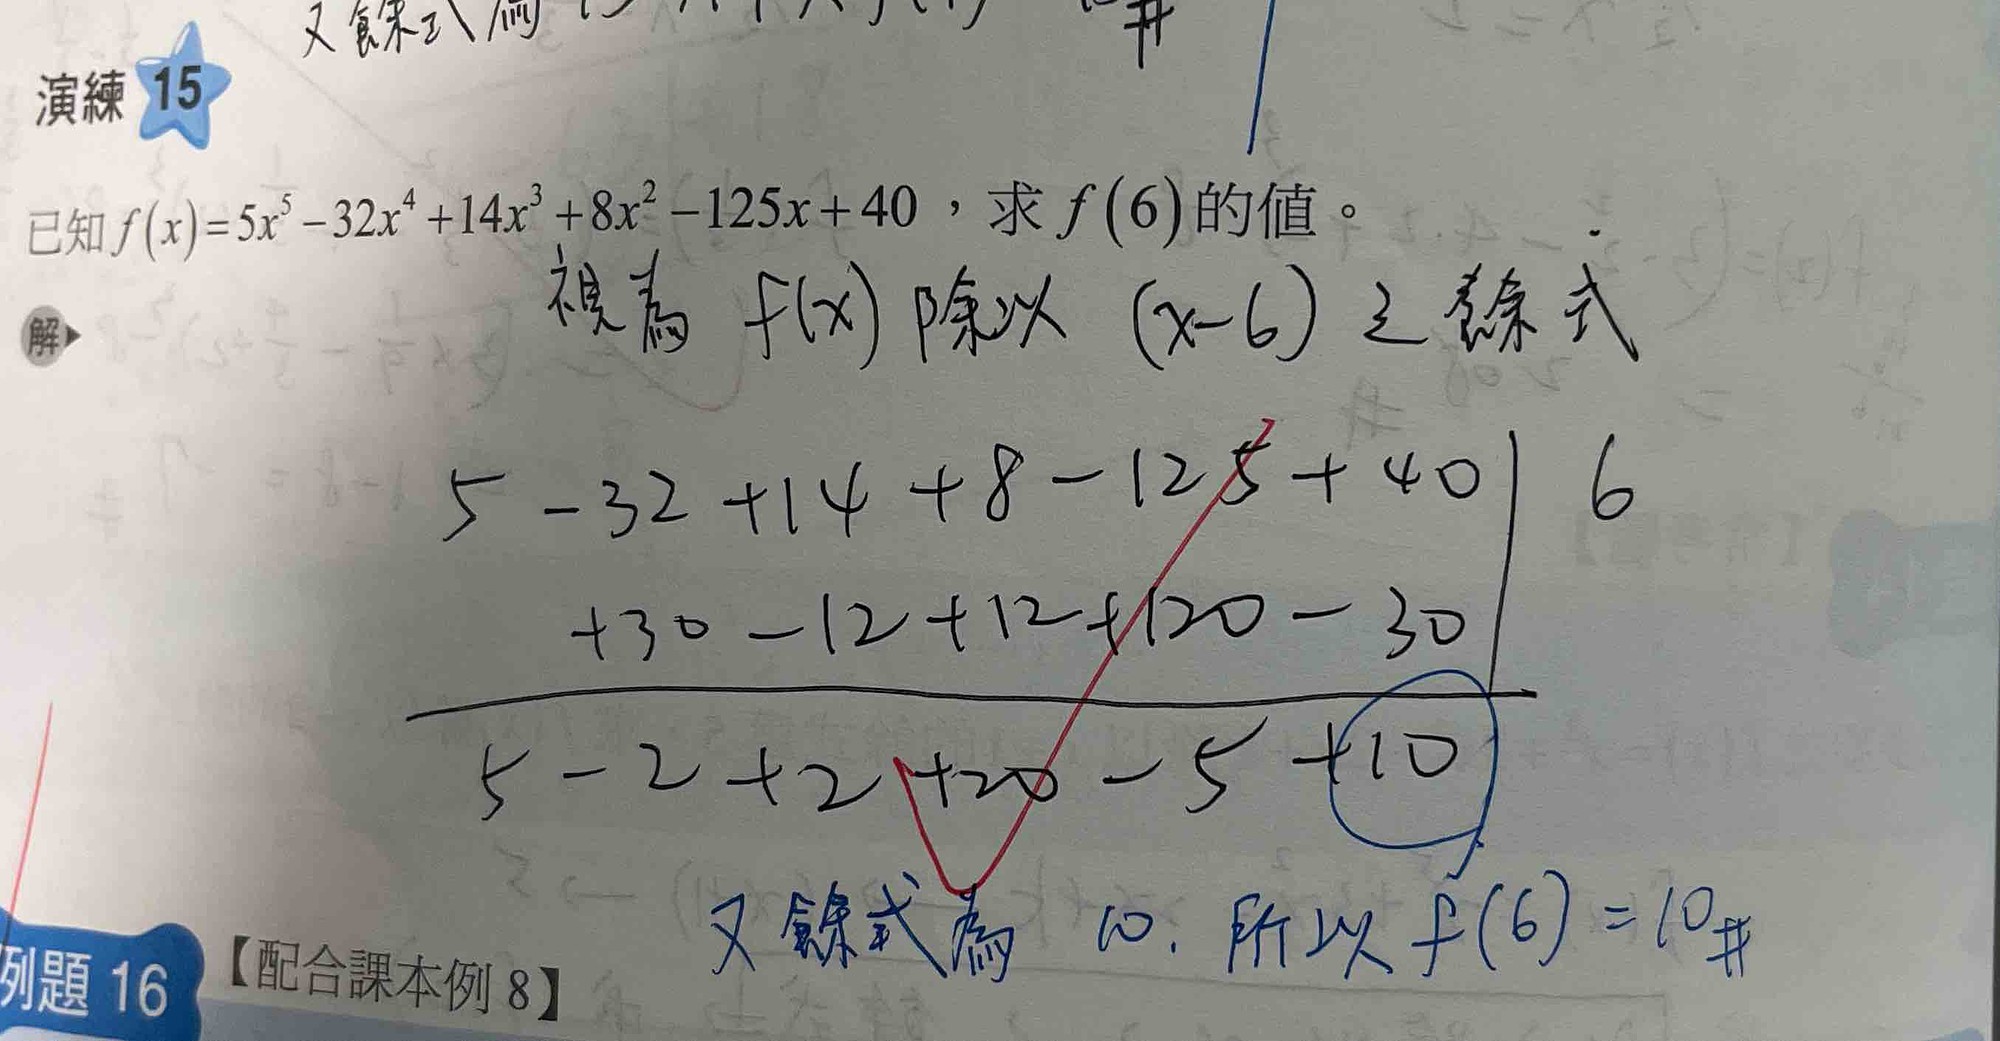 又餘式為
#
演練 15
已知 f(x)=5x⁵−32x⁴+14x³+8x²−125x+40，求 f(6) 的值。
解▶
視為 f(x) 除以 (x-6) 之餘式
5 -32 +14 +8 -125 +40 | 6
+30 -12 +12 +120 -30
5 -2 +2 +20 -5 +10
又餘式為 10. 所以 f(6) = 10 #
例題 16 【配合課本例 8】